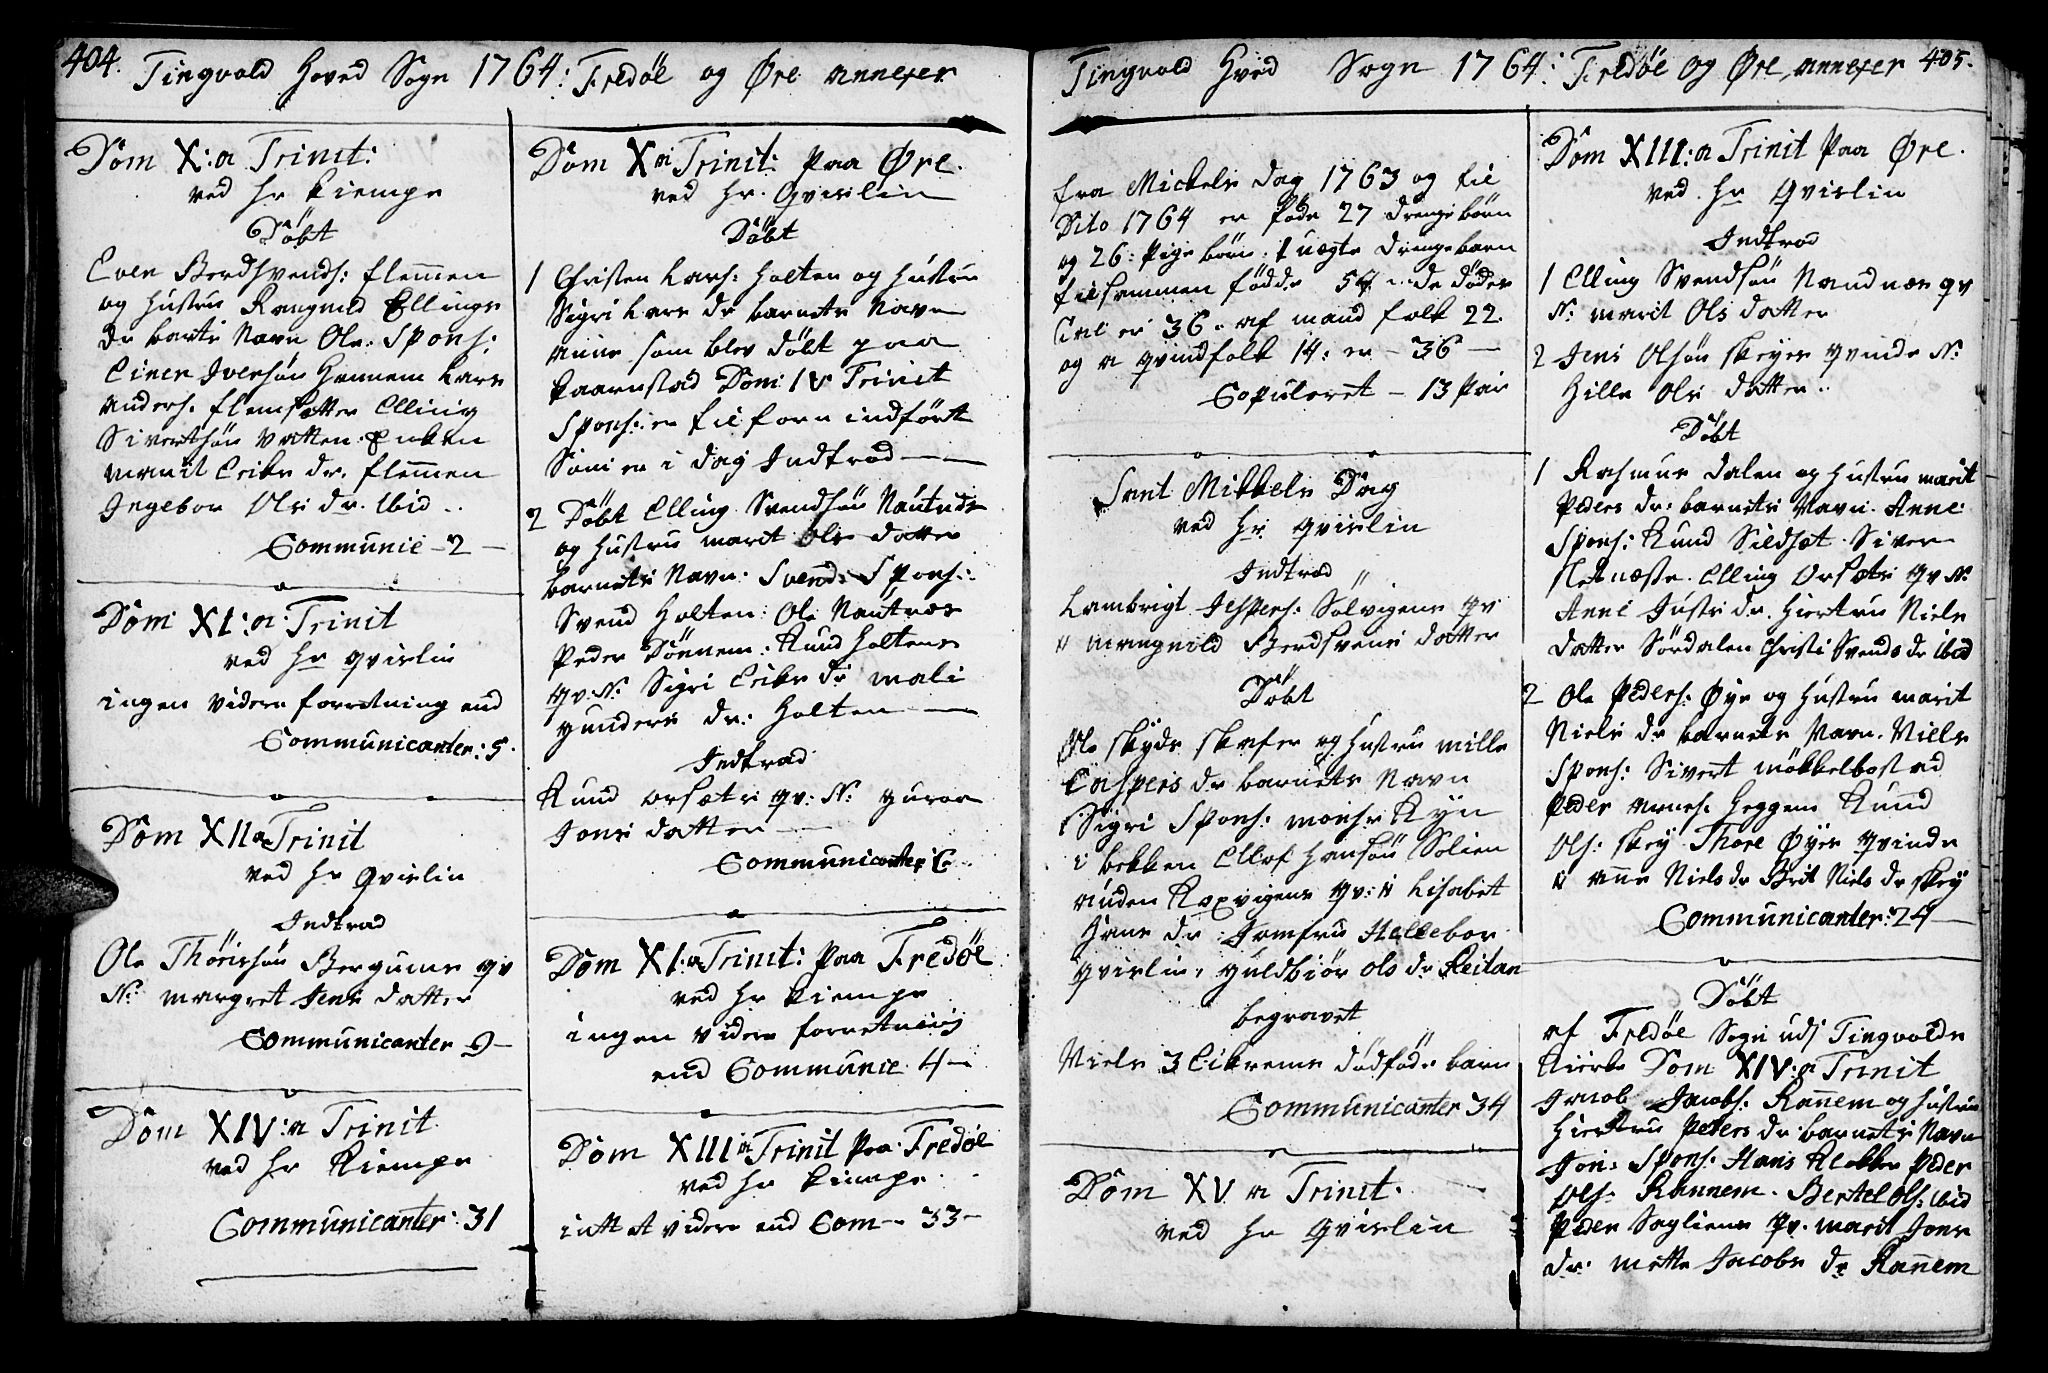 404. Tingvold Hoved Sogn 1764: Fredøe og Øre annexer
Dom X:a Trinit:
ved Hr Kiempe
Döbt
Even Berdsvends: flemmen
og Hustru Rangnild Ellings
dr barts Navn Ole: Spons:
Einer Iversön Hennem Lars
Anders: flemsætter Elling
Sivertsön Vatten: Enken
Marit Eriks dr. flemmen
Ingebor Ols dr. Ibid ..
Communic - 2 -
Dom XI:a Trinit
ved Hr Qvislin
ingen videre forretning end
Communicanter: 5.
Dom XIIa Trinit
ved Hr Qvislin
Indtrad
Ole Thörisön Bergums qv
N: Margret Jens datter
Communicanter 9-
Dom XIV:a Trinit.
ved Hr Kiempe
Communicanter: 31
Dom Xa Trinit: paa Øre.
ved Hr. Qvislin
Döbt
1 Christen Lars: Holten og Hustru
Sigri Lars dr barnets Navn
Anne som blev döbt paa
Kaarnstad Dom: IV Trinit
Spons: er tilforn indfört
Som er i dag Indtrad —
2 Döbt Elling Svendsön Nautnæs
og Hustru Marit Ols datter
barnets Navn: Svend: Spons:
Svend Holten: Ole Nautnæs
Peder Dönnem: Knud Holtens
qv: N: Sigri Eriks dr Mali
Gunders dr: Holten —
Indtrad
Knud Orsæts qv: N: Guroe
Jons datter —
Communicanter 6
Dom XI:a Trinit: paa Fredøe
ved Hr Kiempe
ingen videre forretning
end Communic 4 —
Dom XIIIa Trinit paa Fredøe
ved Hr Kiempe
intet videre end Com— 33 —
Tingvold Hved Sogn 1764: Fredøe og Øre, annexer 405.
Fra Mickels dag 1763 og til
Dito 1764 er föde 27 drenge börn
og 26: Pige börn: 1 uægte drengebarn
tilsammen födde 54 .. de döder
Tal er 36. af mandfolk 22.
og a qvindfolk 14: er - 36 —
Copuleret - 13 Par
Sant Mikkels Dag
ved Hr Qvislin
Indtrad
Lambrigt Jespers: Solvigens qv
N Mangnild Berdsvens datter
Döbt
Ole skyds skafer og Hustru Mille
Caspers dr barnets Navn
Sigri Spons: Monsr Ryn
i bekken Ellof Hansön Solien
Auden Koxvigens qv: N Lisabet
Hans dr: Jomfru Hellebor
Qvislin, Guldbiör Ols dr Reitan
begravet
Niels 3 Eikrems dödföde barn
Communicanter 34
Dom XV a Trinit.
ved Hr Qvislin
Dom XIII:a Trinit paa Øre.
ved Hr Qvislin
Indtrad
1 Elling Svendsön Naudnæs qv
N: Marit Ols datter
2 Jens Olsön Skeyes qvinde N:
Hille Ols datter ..
Döbt
1 Rasmus Dalen og Hustru Marit
Peders dr: barnets Navn. Anne
Spons: Knud Sildset Siver
Sletnæste. Elling Orsæts qv N:
Anne Justs dr. Hiertru Niels
datter Sördalen Christi Svends dr ibid
2 Ole Peders: Øye og Hustru Marit
Niels dr barnets Navn. Niels
Spons: Sivert Mökkelbostad
Peder Arnes: Heggem Knud
Ols: Skey Thore Øyes Qvinde
N Anne Niels dr Brit Niels dr Skey
Communicanter: 24 —
Döbt
af Fredøe Sogn udj Tingvolds
Kierke Dom XIV:a Trinit
Jacob Jacobs: Rannem og Hustru
Hiertru Peders dr barnets Navn
Jon: Spons: Hans Klokker Peder
Ols: Rannem. Bertel Ols: ibid
Peder Sogliens qv. Marit Jons
dr: Mette Jacobs dr Rannem